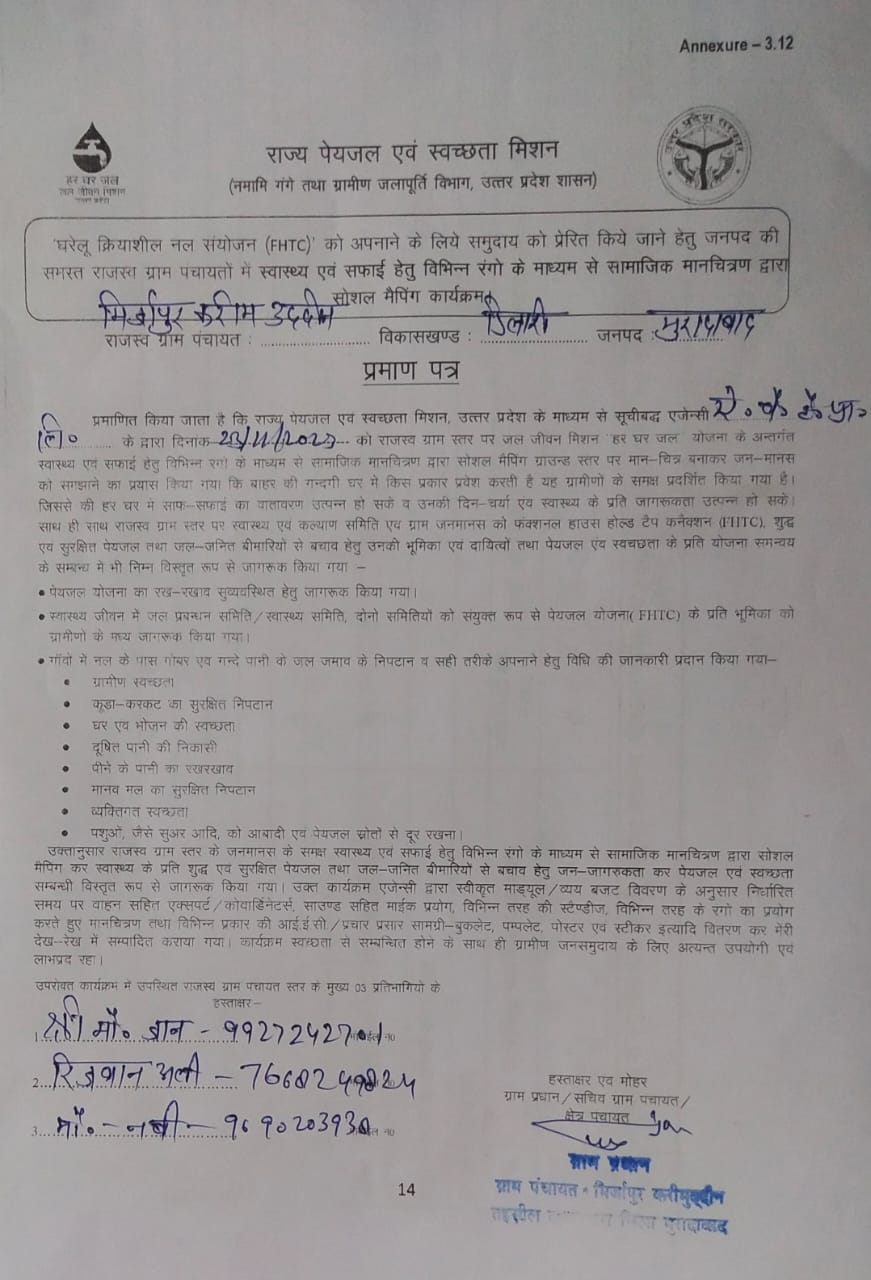 Annexure – 3.12
हर घर जल
जल जीवन मिशन
राज्य पेयजल एवं स्वच्छता मिशन
(नमामि गंगे तथा ग्रामीण जलापूर्ति विभाग, उत्तर प्रदेश शासन)
उत्तर प्रदेश सरकार
'घरेलू क्रियाशील नल संयोजन (FHTC)' को अपनाने के लिये समुदाय को प्रेरित किये जाने हेतु जनपद की
समस्त राजस्व ग्राम पंचायतों में स्वास्थ्य एवं सफाई हेतु विभिन्न रंगो के माध्यम से सामाजिक मानचित्रण द्वारा
सोशल मैपिंग कार्यक्रम
राजस्व ग्राम पंचायत : मिर्जापुर करीम उददीन विकासखण्ड : डिलारी जनपद : मुरादाबाद
प्रमाण पत्र
प्रमाणित किया जाता है कि राज्य पेयजल एवं स्वच्छता मिशन, उत्तर प्रदेश के माध्यम से सूचीबद्ध एजेन्सी
लि० के द्वारा दिनांक को राजस्व ग्राम स्तर पर जल जीवन मिशन "हर घर जल" योजना के अन्तर्गत
स्वास्थ्य एवं सफाई हेतु विभिन्न रंगो के माध्यम से सामाजिक मानचित्रण द्वारा सोशल मैपिंग ग्राउन्ड स्तर पर मान–चित्र बनाकर जन–मानस
को समझाने का प्रयास किया गया कि बाहर की गन्दगी घर मे किस प्रकार प्रवेश करती है यह ग्रामीणों के समक्ष प्रदर्शित किया गया है।
जिससे की हर घर मे साफ–सफाई का वातावरण उत्पन्न हो सके व उनकी दिन–चर्या एवं स्वास्थ्य के प्रति जागरूकता उत्पन्न हो सके।
साथ ही साथ राजस्व ग्राम स्तर पर स्वास्थ्य एवं कल्याण समिति एवं ग्राम जनमानस को फंक्शनल हाउस होल्ड टैप कनैक्शन (FHTC), शुद्ध
एवं सुरक्षित पेयजल तथा जल–जनित बीमारियों से बचाव हेतु उनकी भूमिका एवं दायित्वों तथा पेयजल एंव स्वच्छता के प्रति योजना समन्वय
के सम्बन्ध मे भी निम्न विस्तृत रूप से जागरूक किया गया –
• पेयजल योजना का रख–रखाव सुव्यवस्थित हेतु जागरूक किया गया।
• स्वास्थ्य जीवन में जल प्रबन्धन समिति/स्वास्थ्य समिति, दोनो समितियों को संयुक्त रूप से पेयजल योजना( FHTC) के प्रति भूमिका को
ग्रामीणों के मध्य जागरूक किया गया।
• गाँवों में नल के पास गोबर एव गन्दे पानी के जल जमाव के निपटान व सही तरीके अपनाने हेतु विधि की जानकारी प्रदान किया गया–
• ग्रामीण स्वच्छता
• कूडा–करकट का सुरक्षित निपटान
• घर एव भोजन की स्वच्छता
• दूषित पानी की निकासी
• पीने के पानी का रखरखाव
• मानव मल का सुरक्षित निपटान
• व्यक्तिगत स्वच्छता
• पशुओं, जैसे सुअर आदि, को आबादी एवं पेयजल स्रोतों से दूर रखना।
उक्तानुसार राजस्व ग्राम स्तर के जनमानस के समक्ष स्वास्थ्य एवं सफाई हेतु विभिन्न रंगो के माध्यम से सामाजिक मानचित्रण द्वारा सोशल
मैपिंग कर स्वास्थ्य के प्रति शुद्ध एवं सुरक्षित पेयजल तथा जल–जनित बीमारियों से बचाव हेतु जन–जागरुकता कर पेयजल एवं स्वच्छता
सम्बन्धी विस्तृत रूप से जागरूक किया गया। उक्त कार्यक्रम एजेन्सी द्वारा स्वीकृत माड्यूल/व्यय बजट विवरण के अनुसार निर्धारित
समय पर वाहन सहित एक्सपर्ट/कोवार्डिनेटर्स, साउण्ड सहित माईक प्रयोग, विभिन्न तरह की स्टेण्डीज, विभिन्न तरह के रंगो का प्रयोग
करते हुए मानचित्रण तथा विभिन्न प्रकार की आई.ई.सी./प्रचार प्रसार सामग्री–बुकलेट, पम्पलेट, पोस्टर एवं स्टीकर इत्यादि वितरण कर मेरी
देख–रेख में सम्पादित कराया गया। कार्यक्रम स्वच्छता से सम्बन्धित होने के साथ ही ग्रामीण जनसमुदाय के लिए अत्यन्त उपयोगी एवं
लाभप्रद रहा।
उपरोक्त कार्यक्रम में उपस्थित राजस्व ग्राम पंचायत स्तर के मुख्य 03 प्रतिभागियो के
हस्ताक्षर–
1. श्री मौ० जान - 9927242701
2. रिजवान अली -
3. मौ० - नबी - 9690203930
हस्ताक्षर एवं मोहर
ग्राम प्रधान/सचिव ग्राम पंचायत/
क्षेत्र पंचायत
ग्राम प्रधान
ग्राम पंचायत - मिर्जापुर करीमुद्दीन
तहसील जिला मुरादाबाद
14